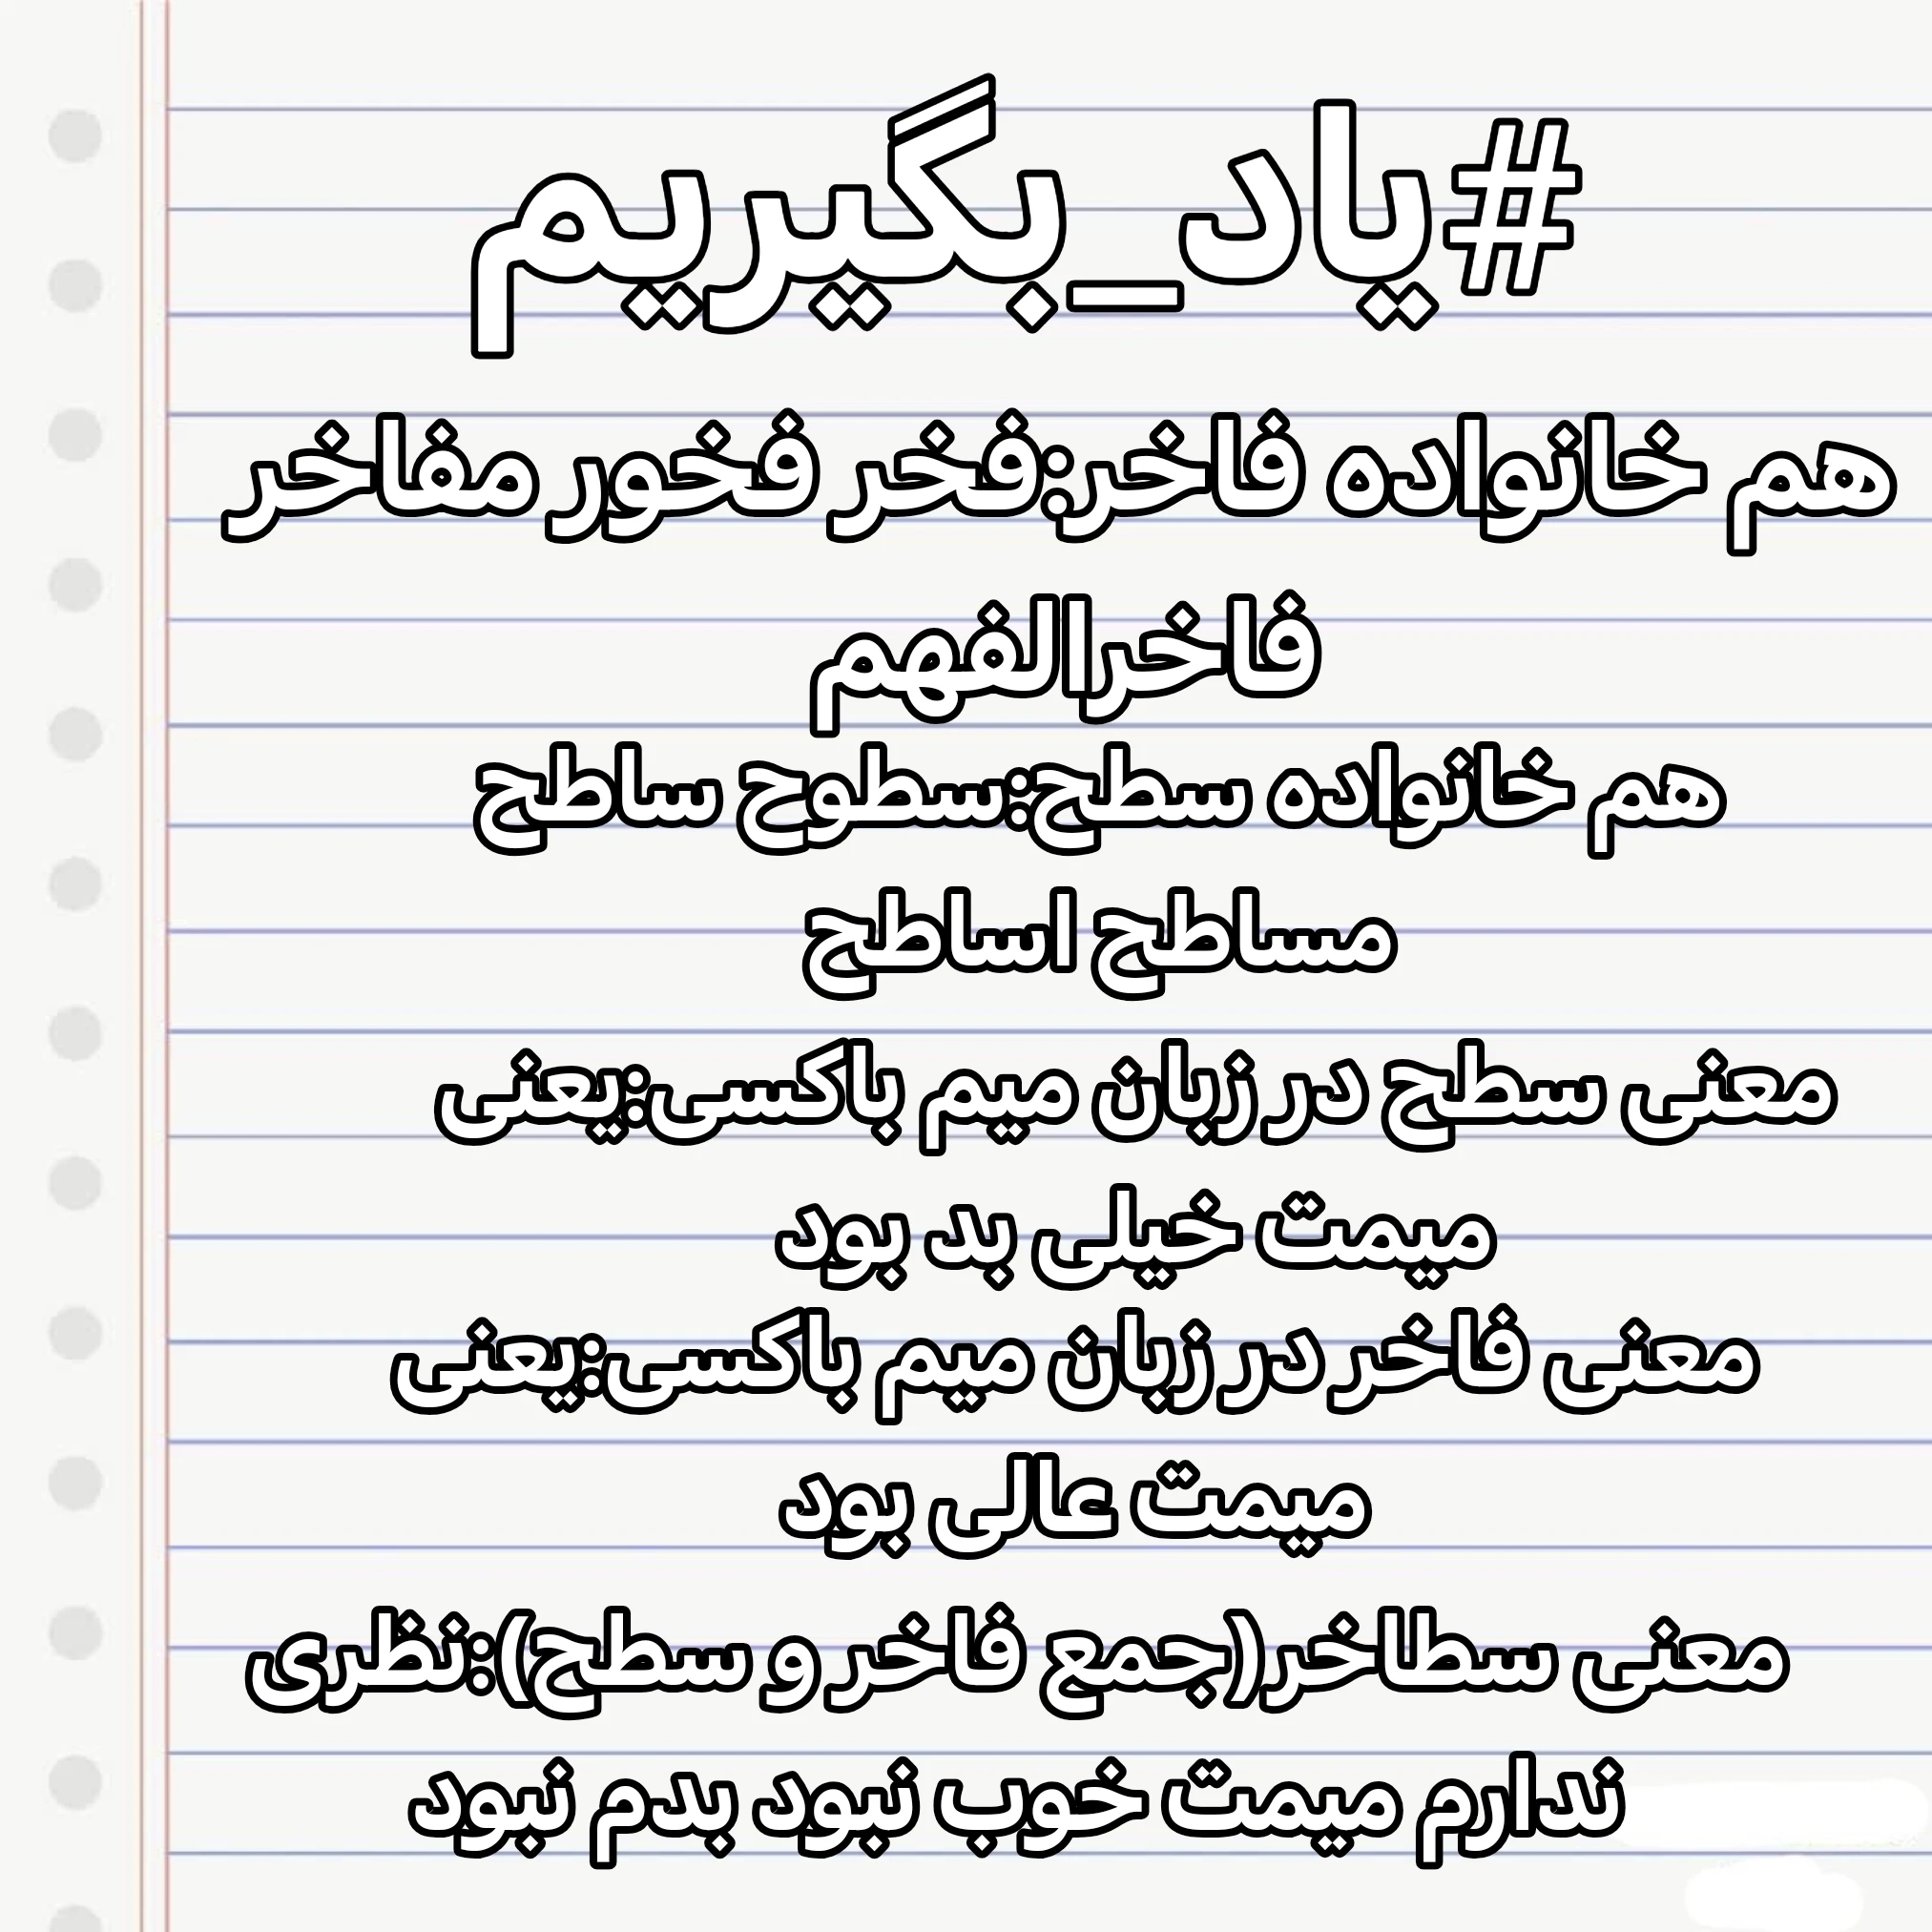 #یاد_بگیریم
هم خانواده فاخر:فخر فخور مفاخر
فاخرالفهم
هم خانواده سطح:سطوح ساطح
مساطح اساطح
معنی سطح در زبان میم باکسی:یعنی
میمت خیلی بد بود
معنی فاخر در زبان میم باکسی:یعنی
میمت عالی بود
معنی سطاخر(جمع فاخر و سطح):نظری
ندارم میمت خوب نبود بدم نبود